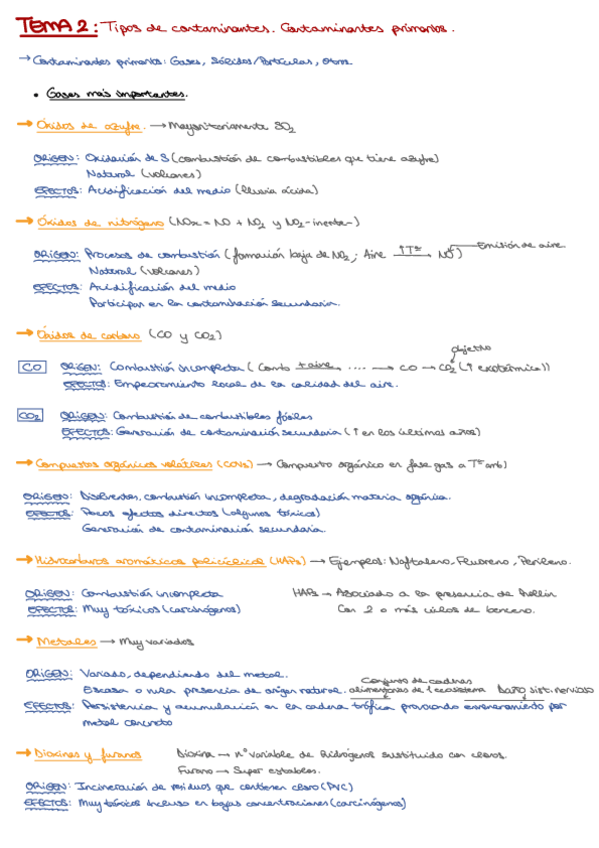 TEMA 2: Tipos de contaminantes. Contaminantes primarios.
→ Contaminantes primarios: Gases, Sólidos/Partículas, Otros.
• Gases más importantes.
→ Óxidos de azufre. → Mayoritariamente SO2
ORIGEN: Oxidación de S (combustión de combustibles que tiene azufre)
Natural (volcanes)
EFECTOS: Acidificación del medio (lluvia ácida)
→ Óxidos de nitrógeno (NOx = NO + NO2 y NO2-inerte-)
ORIGEN: Procesos de combustión (formación baja de NO2; Aire ↑Tª → NO) Emisión de aire
Natural (volcanes)
EFECTOS: Acidificación del medio
Participan en la contaminación secundaria.
→ Óxidos de carbono (CO y CO2)
objetivo
CO ORIGEN: Combustión incompleta (Comb +aire → .... → CO → CO2 (↑ exotérmica))
EFECTOS: Empeoramiento local de la calidad del aire.
CO2 ORIGEN: Combustión de combustibles fósiles
EFECTOS: Generación de contaminación secundaria (↑ en los últimos años)
→ Compuestos orgánicos volátiles (COVs) → Compuesto orgánico en fase gas a Tª amb)
ORIGEN: Disolventes, combustión incompleta, degradación materia orgánica.
EFECTOS: Pocos efectos directos (algunos tóxicos)
Generación de contaminación secundaria.
→ Hidrocarburos aromáticos policíclicos (HAPs) → Ejemplos: Naftaleno, Fluoreno, Perileno.
ORIGEN: Combustión incompleta HAPs → Asociado a la presencia de Hollín
EFECTOS: Muy tóxicos (carcinógenos) Con 2 o más ciclos de benceno.
→ Metales → Muy variados
ORIGEN: Variado, dependiendo del metal.
Escasa o nula presencia de origen natural. Conjunto de cadenas alimentarias de 1 ecosistema Daño sist. nervioso
EFECTOS: Persistencia y acumulación en la cadena trófica provocando envenenamiento por
metal concreto
→ Dioxinas y furanos Dioxina → nº variable de hidrógenos sustituido con cloros.
Furano → Super estables.
ORIGEN: Incineración de residuos que contienen cloro (PVC)
EFECTOS: Muy tóxicos incluso en bajas concentraciones (carcinógenos)